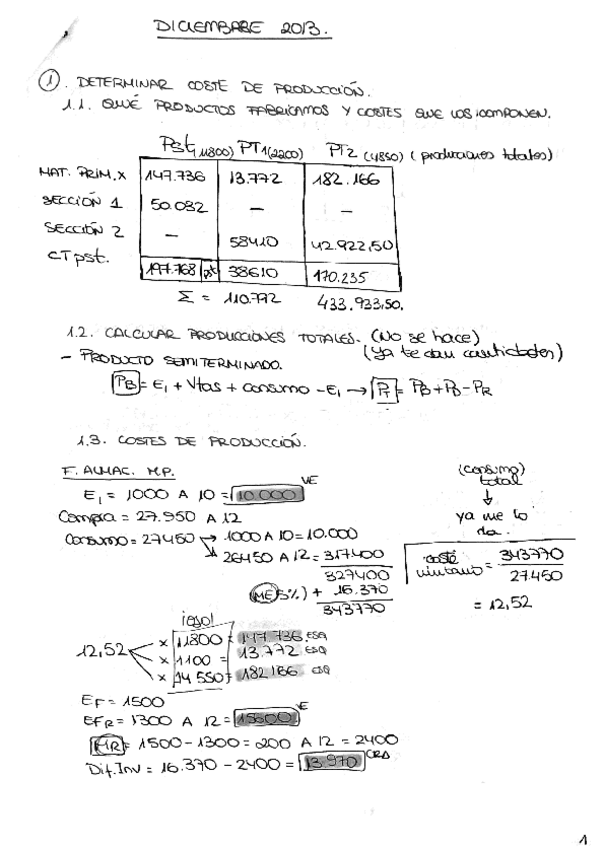 DICIEMBRE 2013.
① . DETERMINAR COSTE DE PRODUCCIÓN.
1.1. QUÉ PRODUCTOS FABRICAMOS Y COSTES QUE LOS COMPONEN.
Pst(11800) PT1(2200) PT2 (4850) (producciones totales)
MAT. PRIM. X 147.736 13.772 182.166
SECCIÓN 1 50.032 – –
SECCIÓN 2 – 58410 42.922,50
CT pst. 197.768 pst 38610 170.235
Σ = 110.792 433.933,50.
1.2. CALCULAR PRODUCCIONES TOTALES. (No se hace)
(Ya te dan cantidades)
– PRODUCTO SEMITERMINADO.
PB = E1 + Vtas + consumo – E1 → PT = PB + PD – PR
1.3. COSTES DE PRODUCCIÓN.
F. ALMAC. M.P.
E1 = 1000 A 10 = 10.000 VE
Compra = 27.950 A 12
Consumo = 27450 → 1000 A 10 = 10.000
26450 A 12 = 317400
327400
(ME 5%) + 16.370
343770
(consumo) total
↓
ya me lo da.
coste unitario = 343770 / 27.450
= 12,52
¡ojo!
12,52 x 11800 = 147.736. ESQ
x 1100 = 13.772 ESQ
x 14550 = 182.166 ESQ
EF = 1500
EFR = 1300 A 12 = 15600 VE
HR = 1500 – 1300 = 200 A 12 = 2400
Dif. Inv = 16.370 – 2400 = 13.970 CRA
1